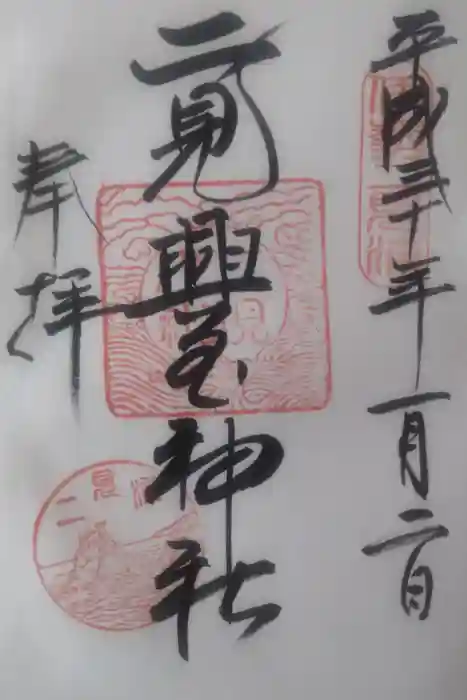 平成三十年一月二日
二見興玉神社
奉拝
二見浦